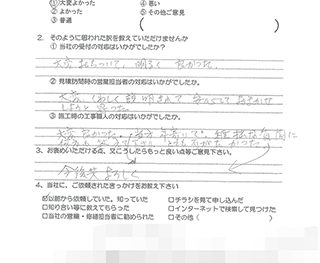 ①大変よかった ④悪い
②よかった ⑤その他ご意見
③普通 ( )
2. そのように思われた訳を教えていただけませんか
①当社の受付の対応はいかがでしたか?
大変 おちついて、明るく よかった。
②見積訪問時の営業担当者の対応はいかがでしたか。
大変 くわしく説明されて
③施工時の工事職人の対応はいかがでしたか。
大変よかった。
3. お褒めいただける点、又こうしたらもっと良い点等ご意見下さい。
今後共よろしく
4. 当社に、ご依頼されたきっかけをお教え下さい
☑以前から依頼していた。知っていた □チラシを見て申し込んだ
□知り合い等に教えてもらった □インターネットで検索して見つけた
□当社の営業・修繕担当者に勧められた □その他( )